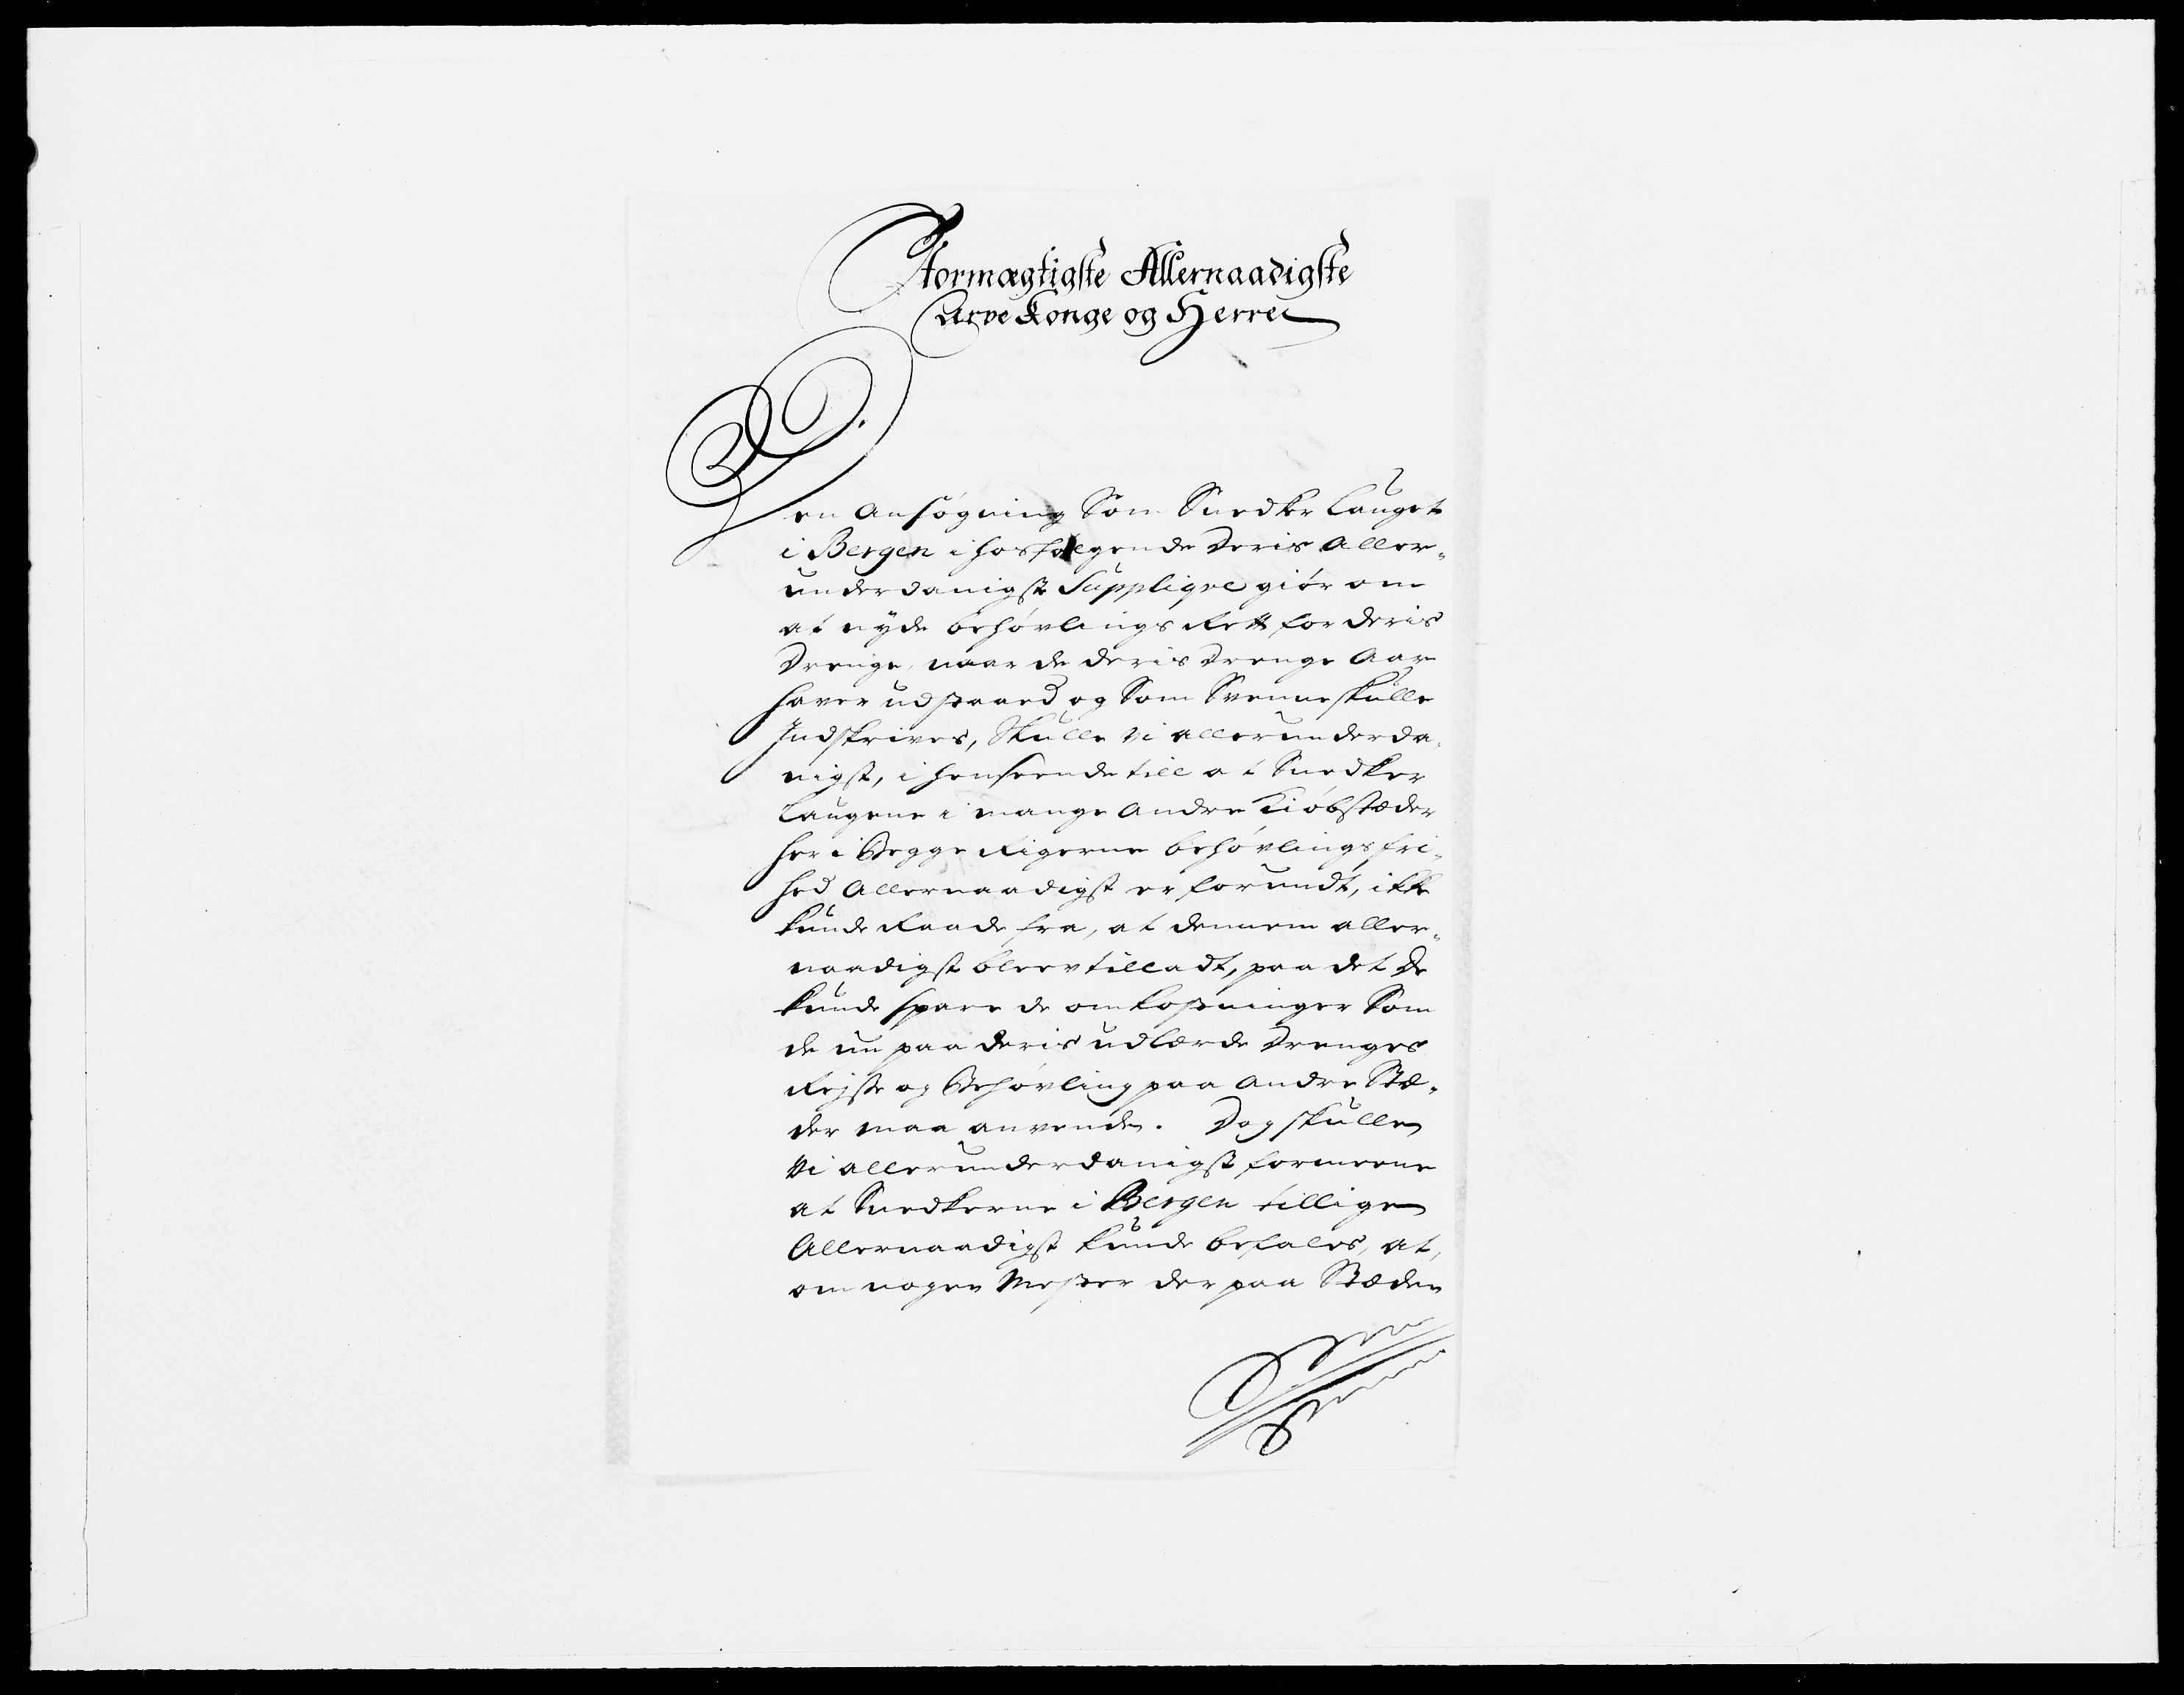 Stormægtigste Allernaadigste
Arve Konge og Herre
Den Ansøgning Som Snedker Lauget
i Bergen i hosfølgende Deris Aller-
underdanigste Supplique giør om
at nyde behøvlings Rett for deris
Drenge, naar de deris Drenge Aar
haver udstaaed og Som Svenne skulle
Indskrives, Skulle Vi allerunderda-
nigst, i henseende till at Snedker
Laugene i mange Andre Kiøbstæder
her i Begge Rigerne behøvlings fri-
hed Allernaadigst er forundt, ikke
kunde Raade fra, at dennem aller-
naadigst bleev tilladt, paa det De
kunde spare de omkostninger Som
de nu paa deris udlærde Drenges
Rejse og Behøvling paa Andre Stæ-
der maa anvende. Dog skulle
Vi allerunderdanigst formeene
at Snedkerne i Bergen tillige
Allernaadigst kunde befales, at,
om nogen Mester der paa Stæden